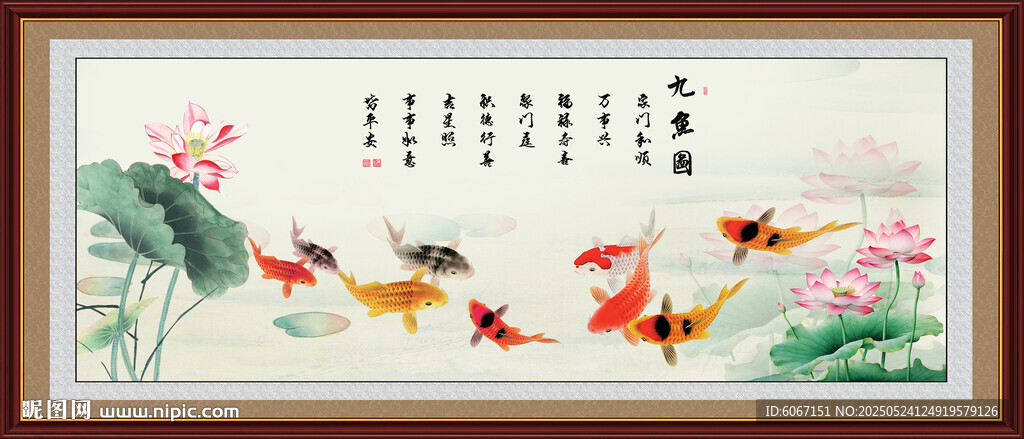 九魚圖
家门和順
万事兴
福禄寿喜
聚门庭
积德行善
吉星照
事事如意
皆平安
昵图网 www.nipic.com
ID:6067151 NO:20250524124919579126